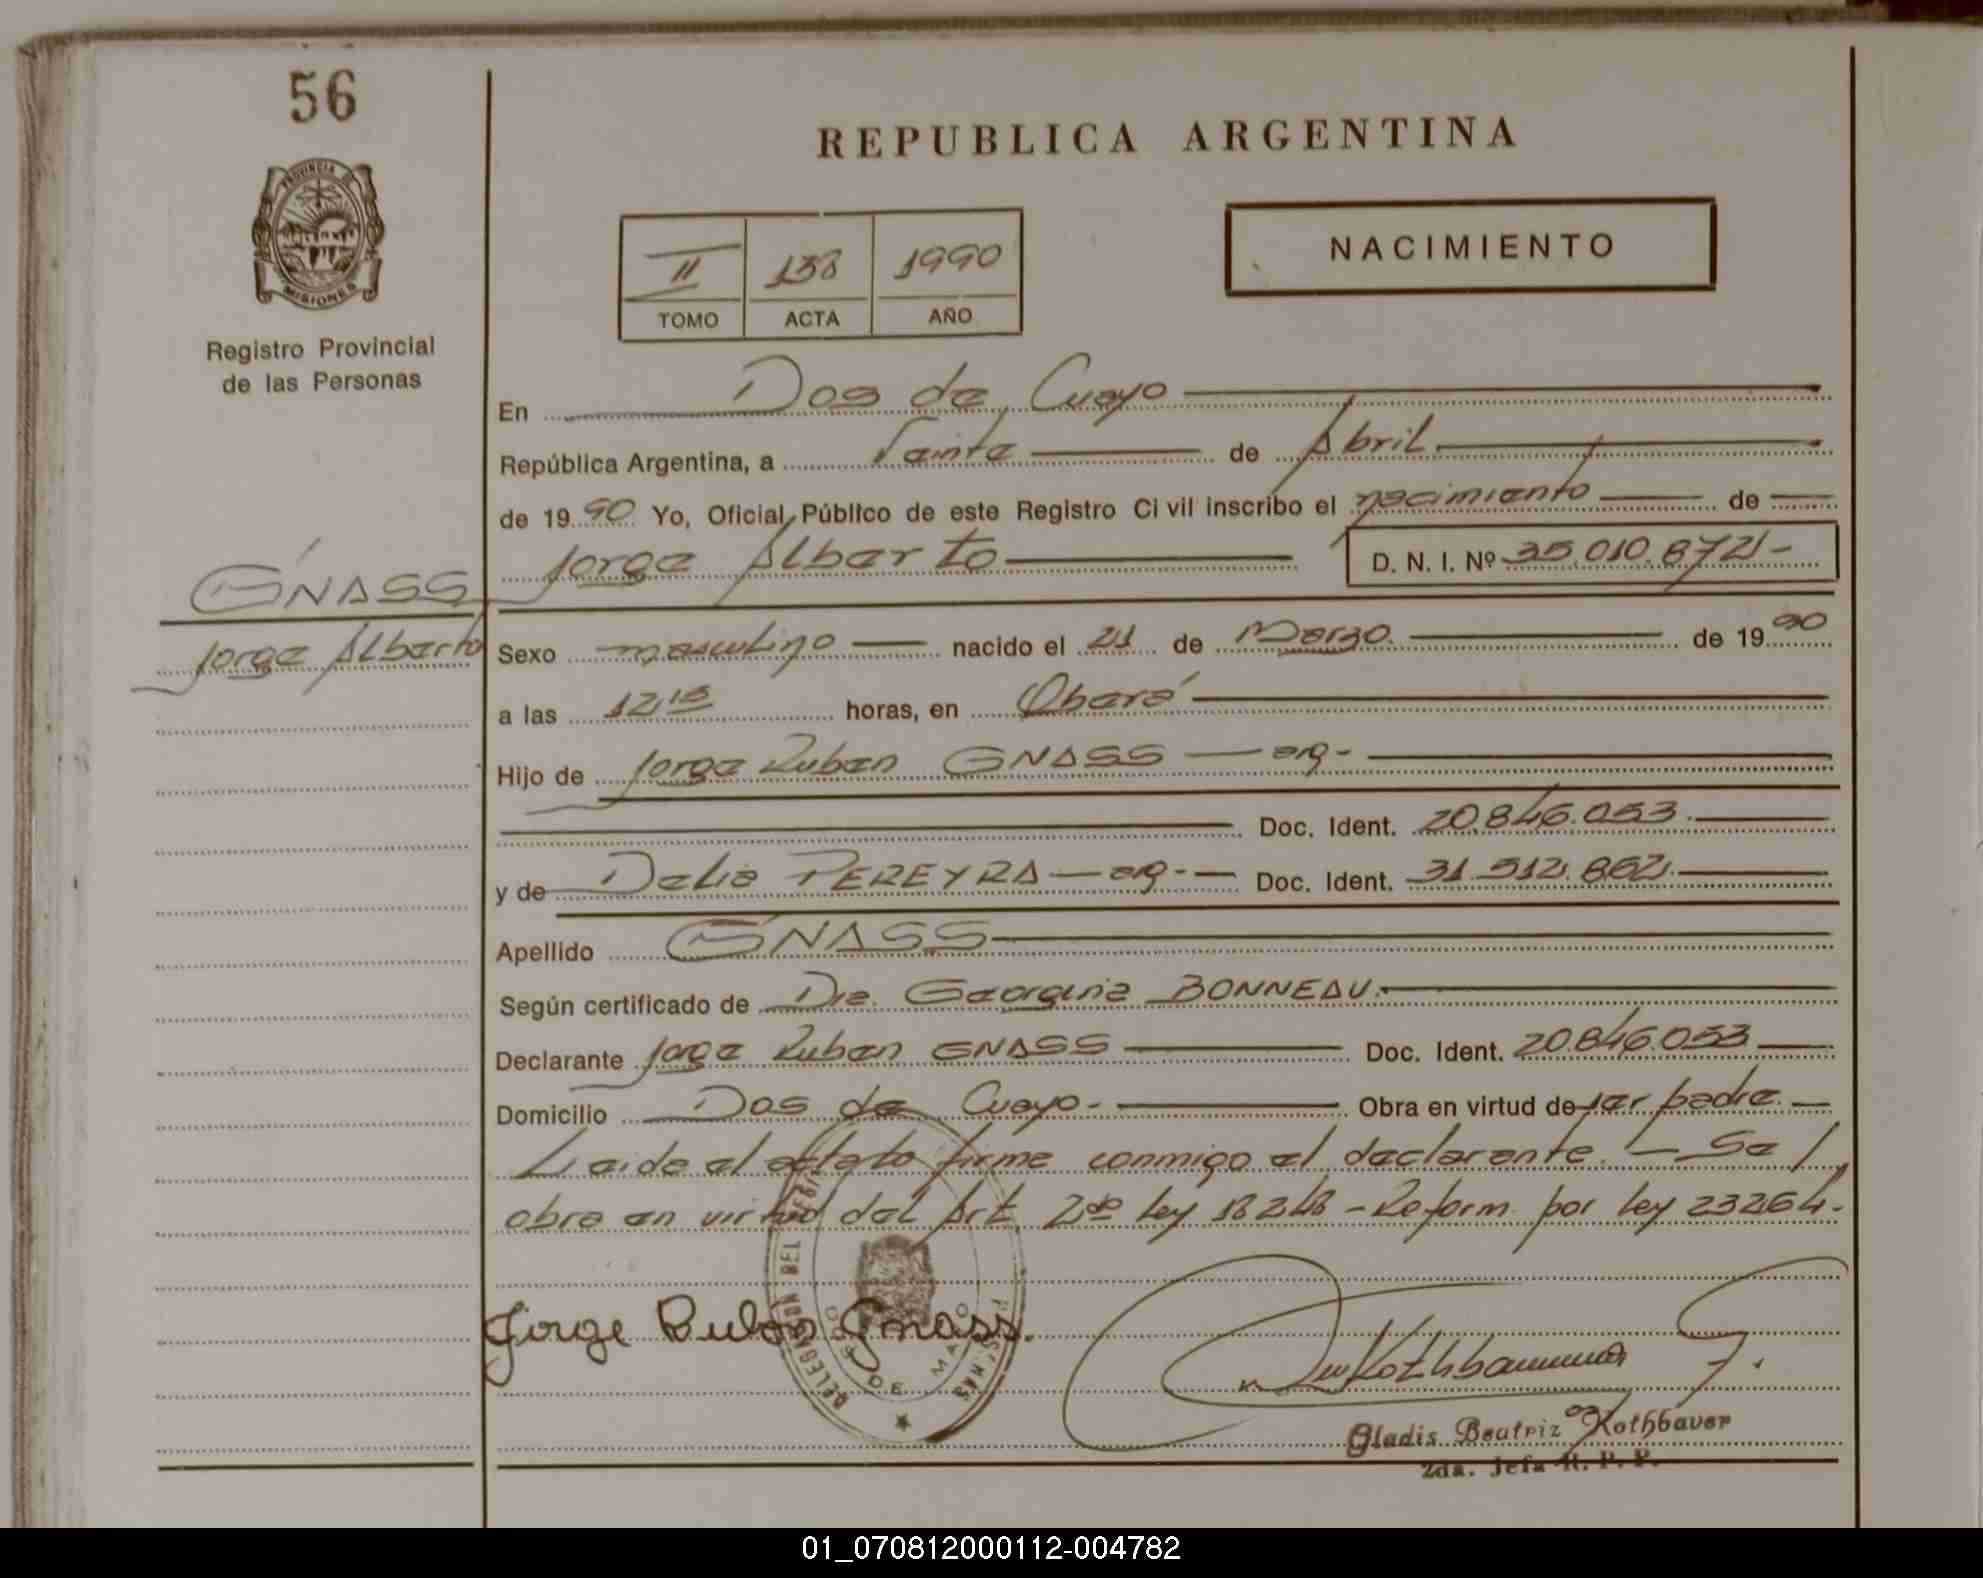 56
PROVINCIA DE
MISIONES
Registro Provincial
de las Personas
REPUBLICA ARGENTINA
NACIMIENTO
II 138 1990
TOMO ACTA AÑO
En Dos de Mayo
República Argentina, a Veinte de Abril
de 1990 Yo, Oficial Público de este Registro Civil inscribo el nacimiento de
Jorge Alberto D. N. I. Nº 35.010.872-
GNASS
Jorge Alberto
Sexo masculino nacido el 21 de Marzo de 1990
a las 12,15 horas, en Oberá
Hijo de Jorge Ruben GNASS - arg-
Doc. Ident. 20.846.053.
y de Delia PEREYRA - arg - Doc. Ident. 31.512.862.
Apellido GNASS
Según certificado de Dra. Georgina BONNEAU.
Declarante Jorge Ruben GNASS Doc. Ident. 20.846.053
Domicilio Dos de Mayo.- Obra en virtud de ser padre.
Leida el acta lo firma conmigo el declarante. - Se
obra en virtud del Art. 2do ley 18248 - Reform. por ley 23264.
DELEGACION DEL
DOS DE MAYO
Jorge Ruben Gnass.
Gladis Beatriz Kothbauer
2da. Jefa R. P. P.
01_070812000112-004782